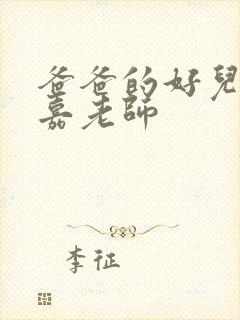 爸爸的好兒
嘉老師
李征